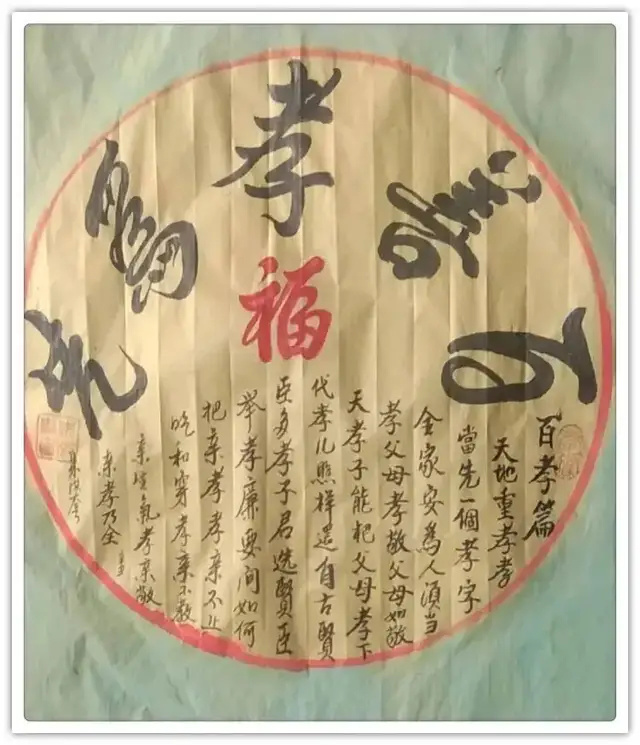 百善孝為先
福
百孝篇
天地重孝孝
當先一個孝字
全家安為人須当
孝父母孝敬父母如敬
天孝子能把父母孝下
代孝儿照样還自古賢
臣多孝子君选賢臣
舉孝廉要问如何
把亲孝孝亲不止
吃和穿孝亲不教
亲生氣孝亲敬
亲孝乃全